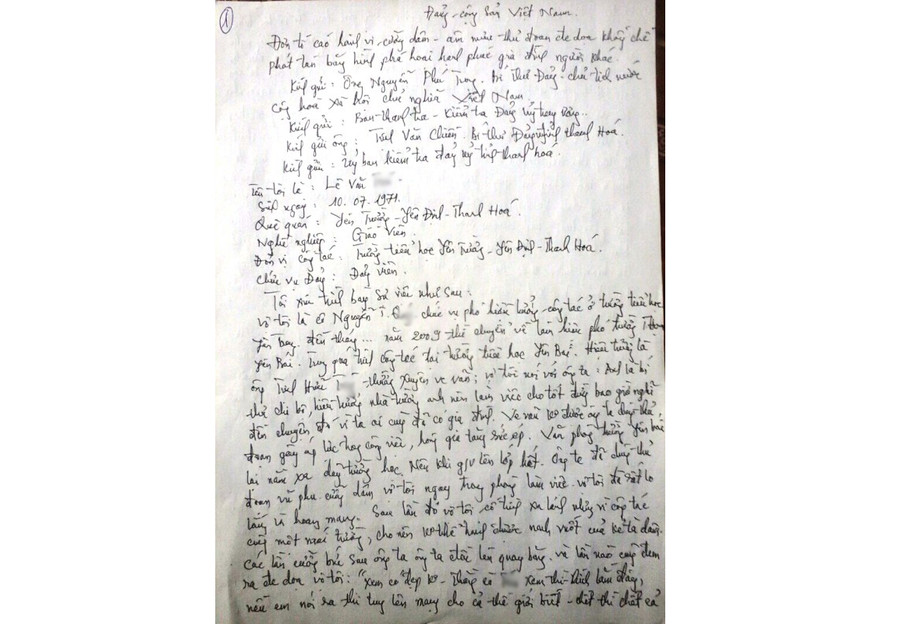 1
Đảng cộng Sản Việt Nam.
Đơn tố cáo hành vi cưỡng dâm - âm mưu thủ đoạn đe dọa khống chế
phát tán băng hình phá hoại hạnh phúc gia đình người khác.
Kính gửi: Ông Nguyễn Phú Trọng. Bí thư Đảng - chủ tịch nước
cộng hoà xã hội chủ nghĩa Việt Nam
Kính gửi: Ban thanh tra - kiểm tra Đảng uỷ trung ương.
Kính gửi ông: Trịnh Văn Chiến. Bí thư Đảng uỷ tỉnh thanh Hoá.
Kính gửi: Uỷ ban kiểm tra đảng uỷ tỉnh thanh hoá.
Tên tôi là: Lê Văn
Sinh ngày: 10.07.1971.
Quê quán: Yên Trường - Yên Định - Thanh Hoá.
Nghề nghiệp: Giáo Viên.
Đơn vị công tác: Trường tiểu học Yên Trường - Yên Định - Thanh Hoá.
Chức vụ Đảng: Đảng viên.
Tôi xin trình bày sự việc như sau:
Vợ tôi là cô Nguyễn T. chức vụ phó hiệu trưởng công tác ở trường tiểu học
đến tháng ... năm 2009 thì chuyển về làm hiệu phó trường
Yên Bái. Trong quá trình công tác tại trường tiểu học Yên Bái. Hiệu trưởng là
ông Trịnh Hữu T thường xuyên ve vãn, vợ tôi nói với ông ta: Anh là bí
thư chi bộ, hiệu trưởng nhà trường anh nên làm việc cho tốt đừng bao giờ nghĩ
đến chuyện đó vì ta ai cũng đã có gia đình. Ve vãn ko được ông ta dùng thủ
đoạn gây áp lực trong công việc, hòng gia tăng sức ép. Văn phòng trường Yên bái
lại nằm xa dãy trường học. Nên khi g/v lên lớp hết. Ông ta đã dùng thủ
đoạn vũ phu cưỡng dâm vợ tôi ngay trong phòng làm việc. vợ tôi đã rất lo
lắng và hoang mang. Sau lần đó vợ tôi cố tình xa lánh nhưng vì công tác
cùng một mái trường, cho nên ko thể tránh được nanh vuốt của kẻ tà dâm.
các lần cưỡng bức sau ông ta ông ta đều lén quay băng và lần nào cũng đem
ra đe dọa vợ tôi: "xem có đẹp ko - thằng có xem thì thích lắm đấy,
nếu em nói ra thì tung lên mạng cho cả thế giới biết - chết thì chết cả